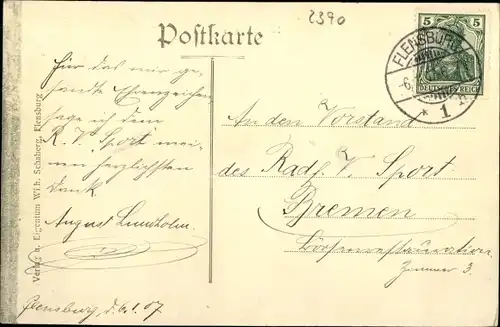 2390
Postkarte
5
DEUTSCHES REICH
FLENSBURG
* 1
Für das mir ge-
sandte Ehrenzeichen
sage ich dem
R. V. "Sport" mei-
nen herzlichsten
Dank
August Lundholm.
Flensburg, d. 6.1.07
Verlag u. Eigentum Wilh. Schaberg, Flensburg
An den Vorstand
des Radf. V. Sport
Bremen
Börsenrestauration
Zimmer 3.